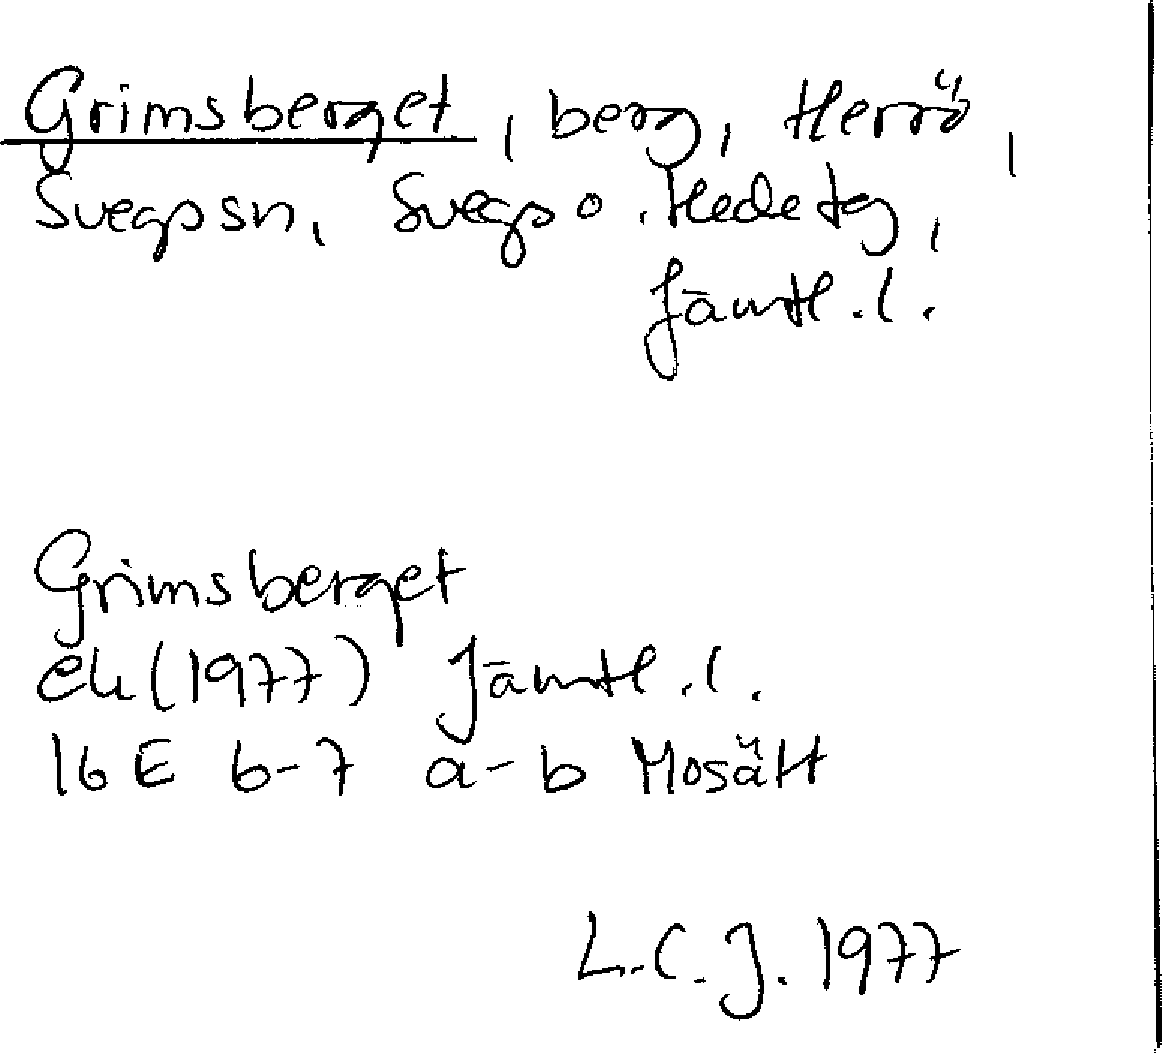 Grimsberget, berg, Herrö,
Svegs sn, Svegs o. Hede tg,
Jämtl. l.
Grimsberget
ek (1977) Jämtl. l.
16 E 6-7 a-b Mosätt
L.C.J. 1977